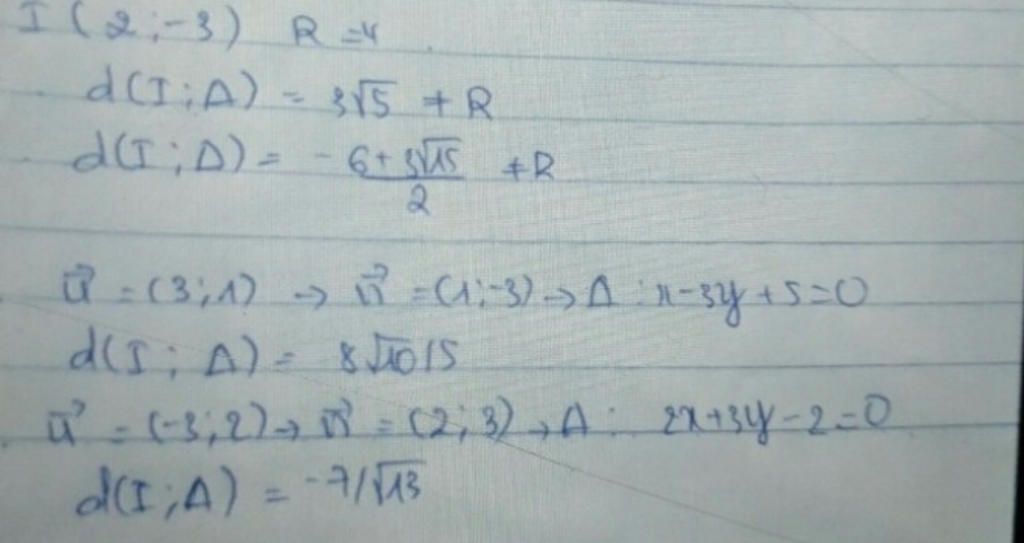 I (2;-3) R =4
d(I;Δ) = 3√5 ≠ R
d(I;Δ) = -6+3√15 / 2 ≠ R
u⃗ = (3;1) → n⃗ = (1;-3) → Δ : x-3y+5=0
d(I;Δ) = 8√10/5
u⃗ = (-3;2) → n⃗ = (2;3) → Δ : 2x+3y-2=0
d(I;Δ) = -7/√13